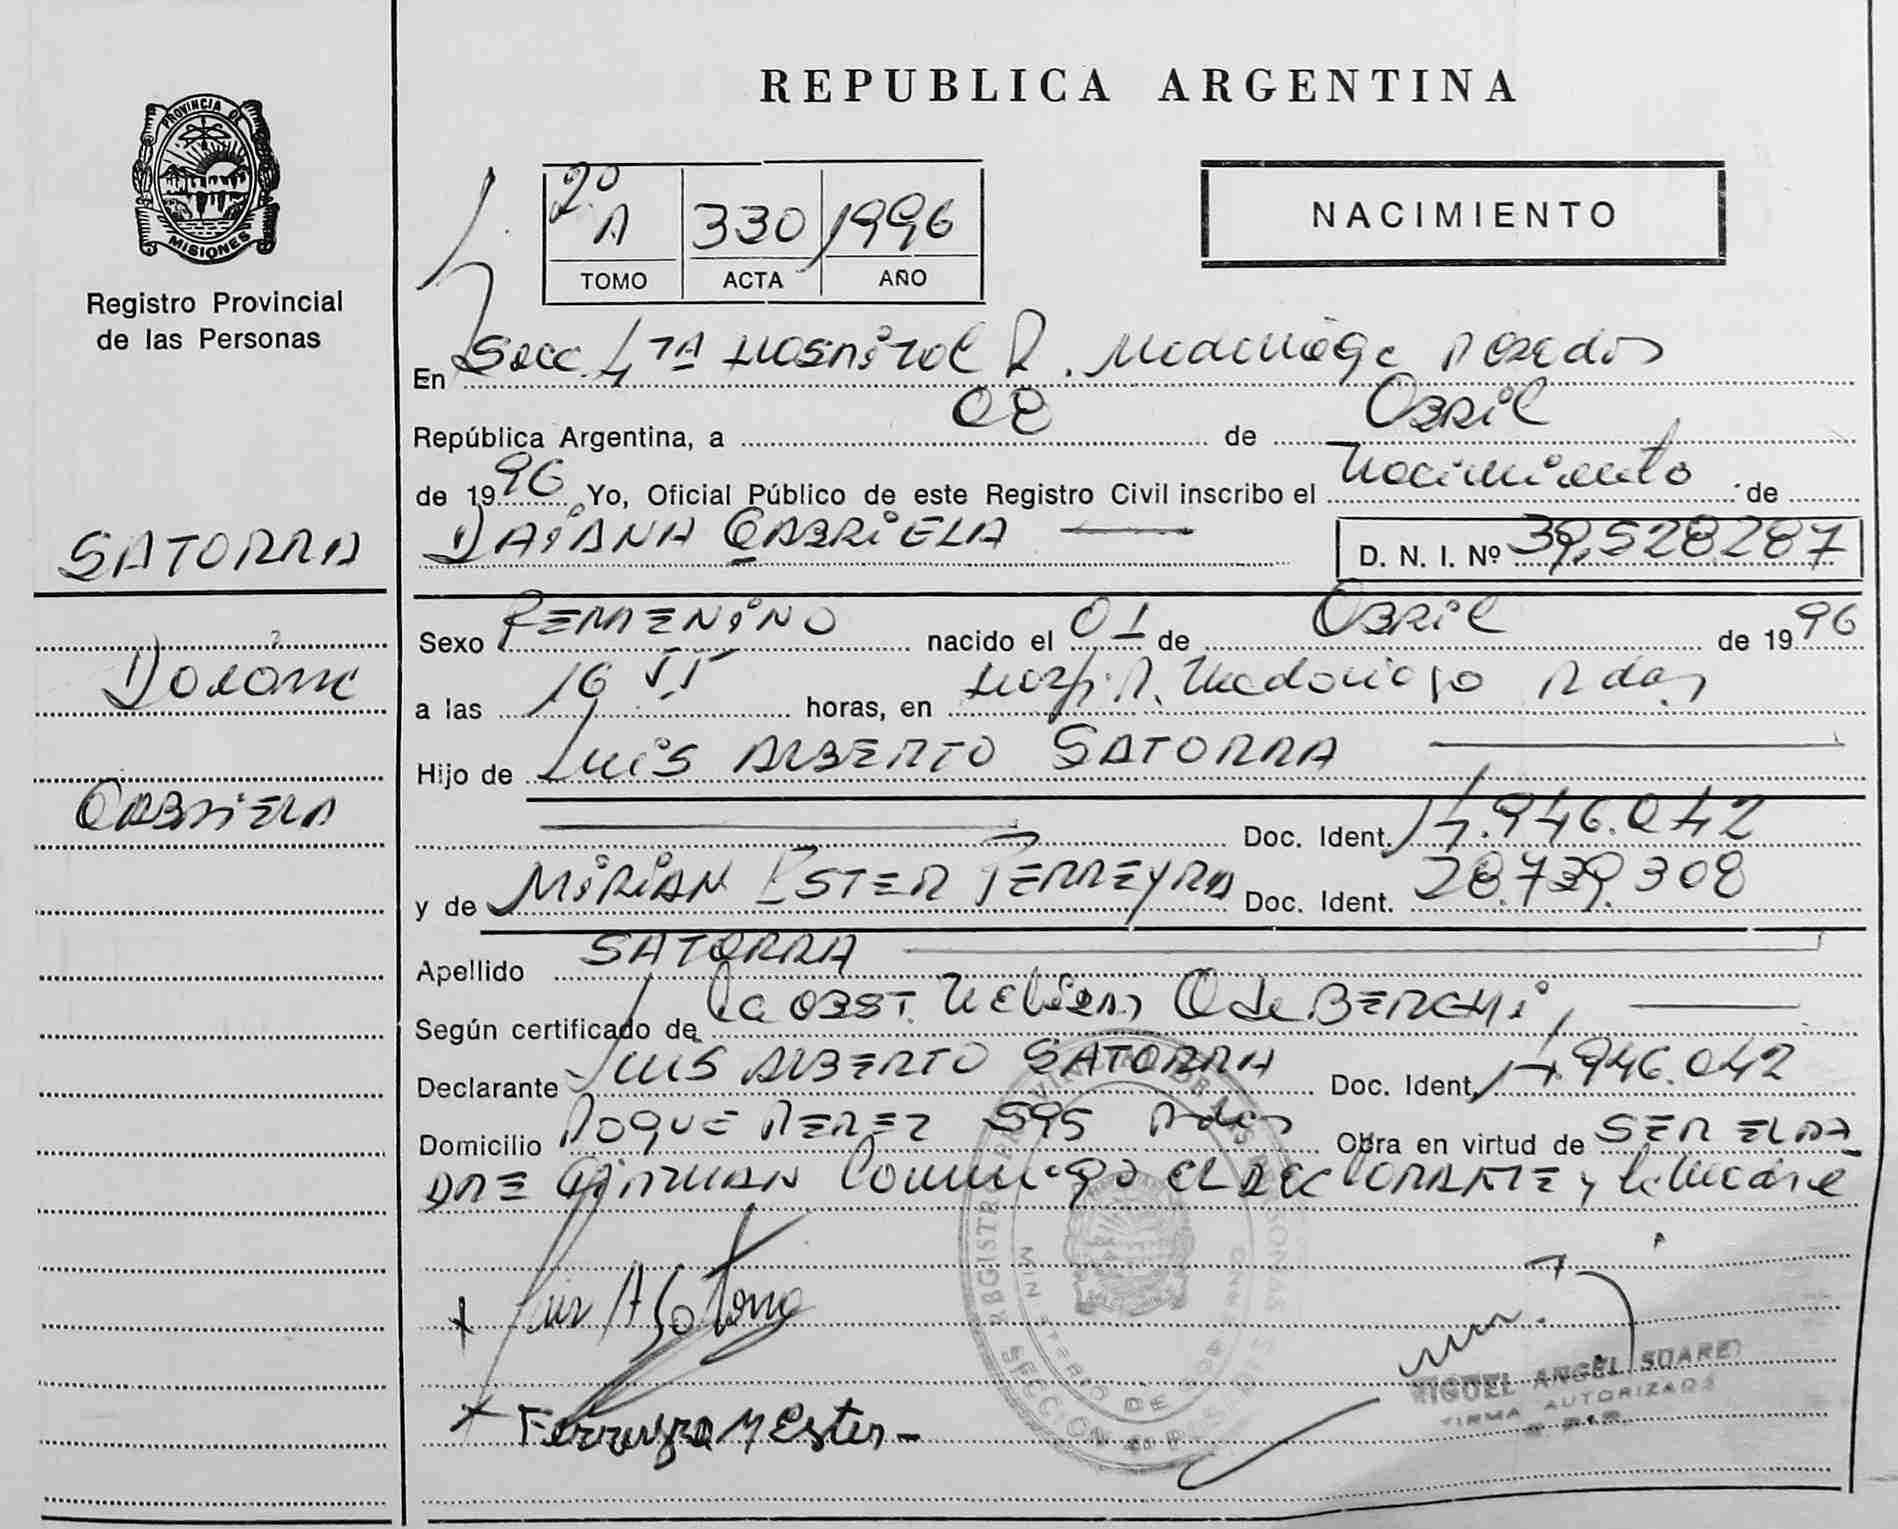 REPUBLICA ARGENTINA
PROVINCIA DE
MISIONES
Registro Provincial
de las Personas
2º A 330 1996
TOMO ACTA AÑO
NACIMIENTO
En Secc. 4TA Hospital R. Madariaga Posadas
República Argentina, a 08 de Abril
de 1996 Yo, Oficial Público de este Registro Civil inscribo el Nacimiento de
DAIANA GABRIELA D. N. I. Nº 39.528.287
SATORRA
Daiana
GABRIELA
Sexo FEMENINO nacido el 01 de Abril de 1996
a las 16 horas, en Hosp. R. Madariaga Pdas
Hijo de Luis ALBERTO SATORRA
Doc. Ident. 14.946.042
y de MIRIAN ESTER FERREYRA Doc. Ident. 28.739.308
Apellido SATORRA
Según certificado de la OBST.
Declarante Luis ALBERTO SATORRA Doc. Ident. 14.946.042
Domicilio ROQUE PEREZ 595 Pdas Obra en virtud de SER EL PA
DRE FIRMAN Conmigo EL DECLARANTE y la Madre
Luis A Satorra
Ferreyra M Ester
MIGUEL ANGEL SUAREZ
FIRMA AUTORIZADA